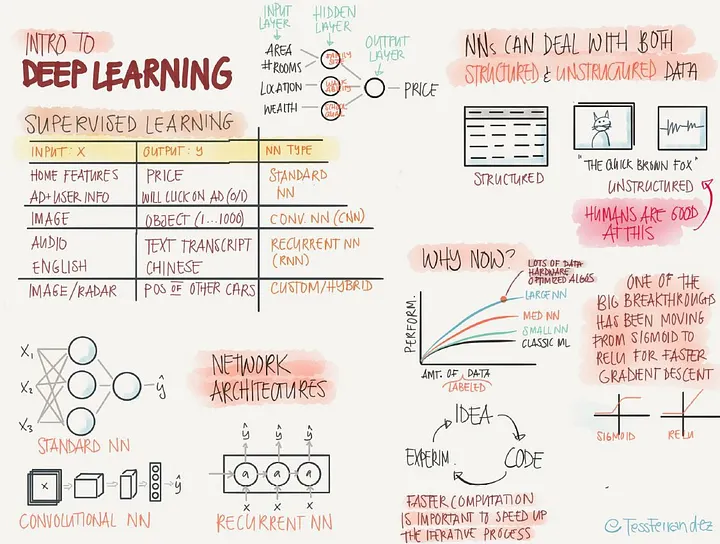 INTRO TO
DEEP LEARNING
INPUT LAYER
HIDDEN LAYER
OUTPUT LAYER
AREA
# ROOMS
LOCATION
WEALTH
FAMILY SIZE
PRICE
SUPERVISED LEARNING
INPUT: X OUTPUT: y NN TYPE
HOME FEATURES PRICE STANDARD
AD+USER INFO WILL CLICK ON AD (0/1) NN
IMAGE OBJECT (1...1000) CONV. NN (CNN)
AUDIO TEXT TRANSCRIPT RECURRENT NN
ENGLISH CHINESE (RNN)
IMAGE/RADAR POS OF OTHER CARS CUSTOM/HYBRID
X1
X2
X3
ŷ
STANDARD NN
X
ŷ
CONVOLUTIONAL NN
NETWORK
ARCHITECTURES
ŷ ŷ ŷ
a a a
X X X
RECURRENT NN
NNs CAN DEAL WITH BOTH
STRUCTURED & UNSTRUCTURED DATA
STRUCTURED
"THE QUICK BROWN FOX"
UNSTRUCTURED
HUMANS ARE GOOD
AT THIS
WHY NOW?
LOTS OF DATA
HARDWARE
OPTIMIZED ALGOS
LARGE NN
MED NN
SMALL NN
CLASSIC ML
PERFORM.
AMT. OF DATA
LABELED
IDEA
EXPERIM.
CODE
FASTER COMPUTATION
IS IMPORTANT TO SPEED UP
THE ITERATIVE PROCESS
ONE OF THE
BIG BREAKTHROUGHS
HAS BEEN MOVING
FROM SIGMOID TO
RELU FOR FASTER
GRADIENT DESCENT
SIGMOID
RELU
@TessFerrandez